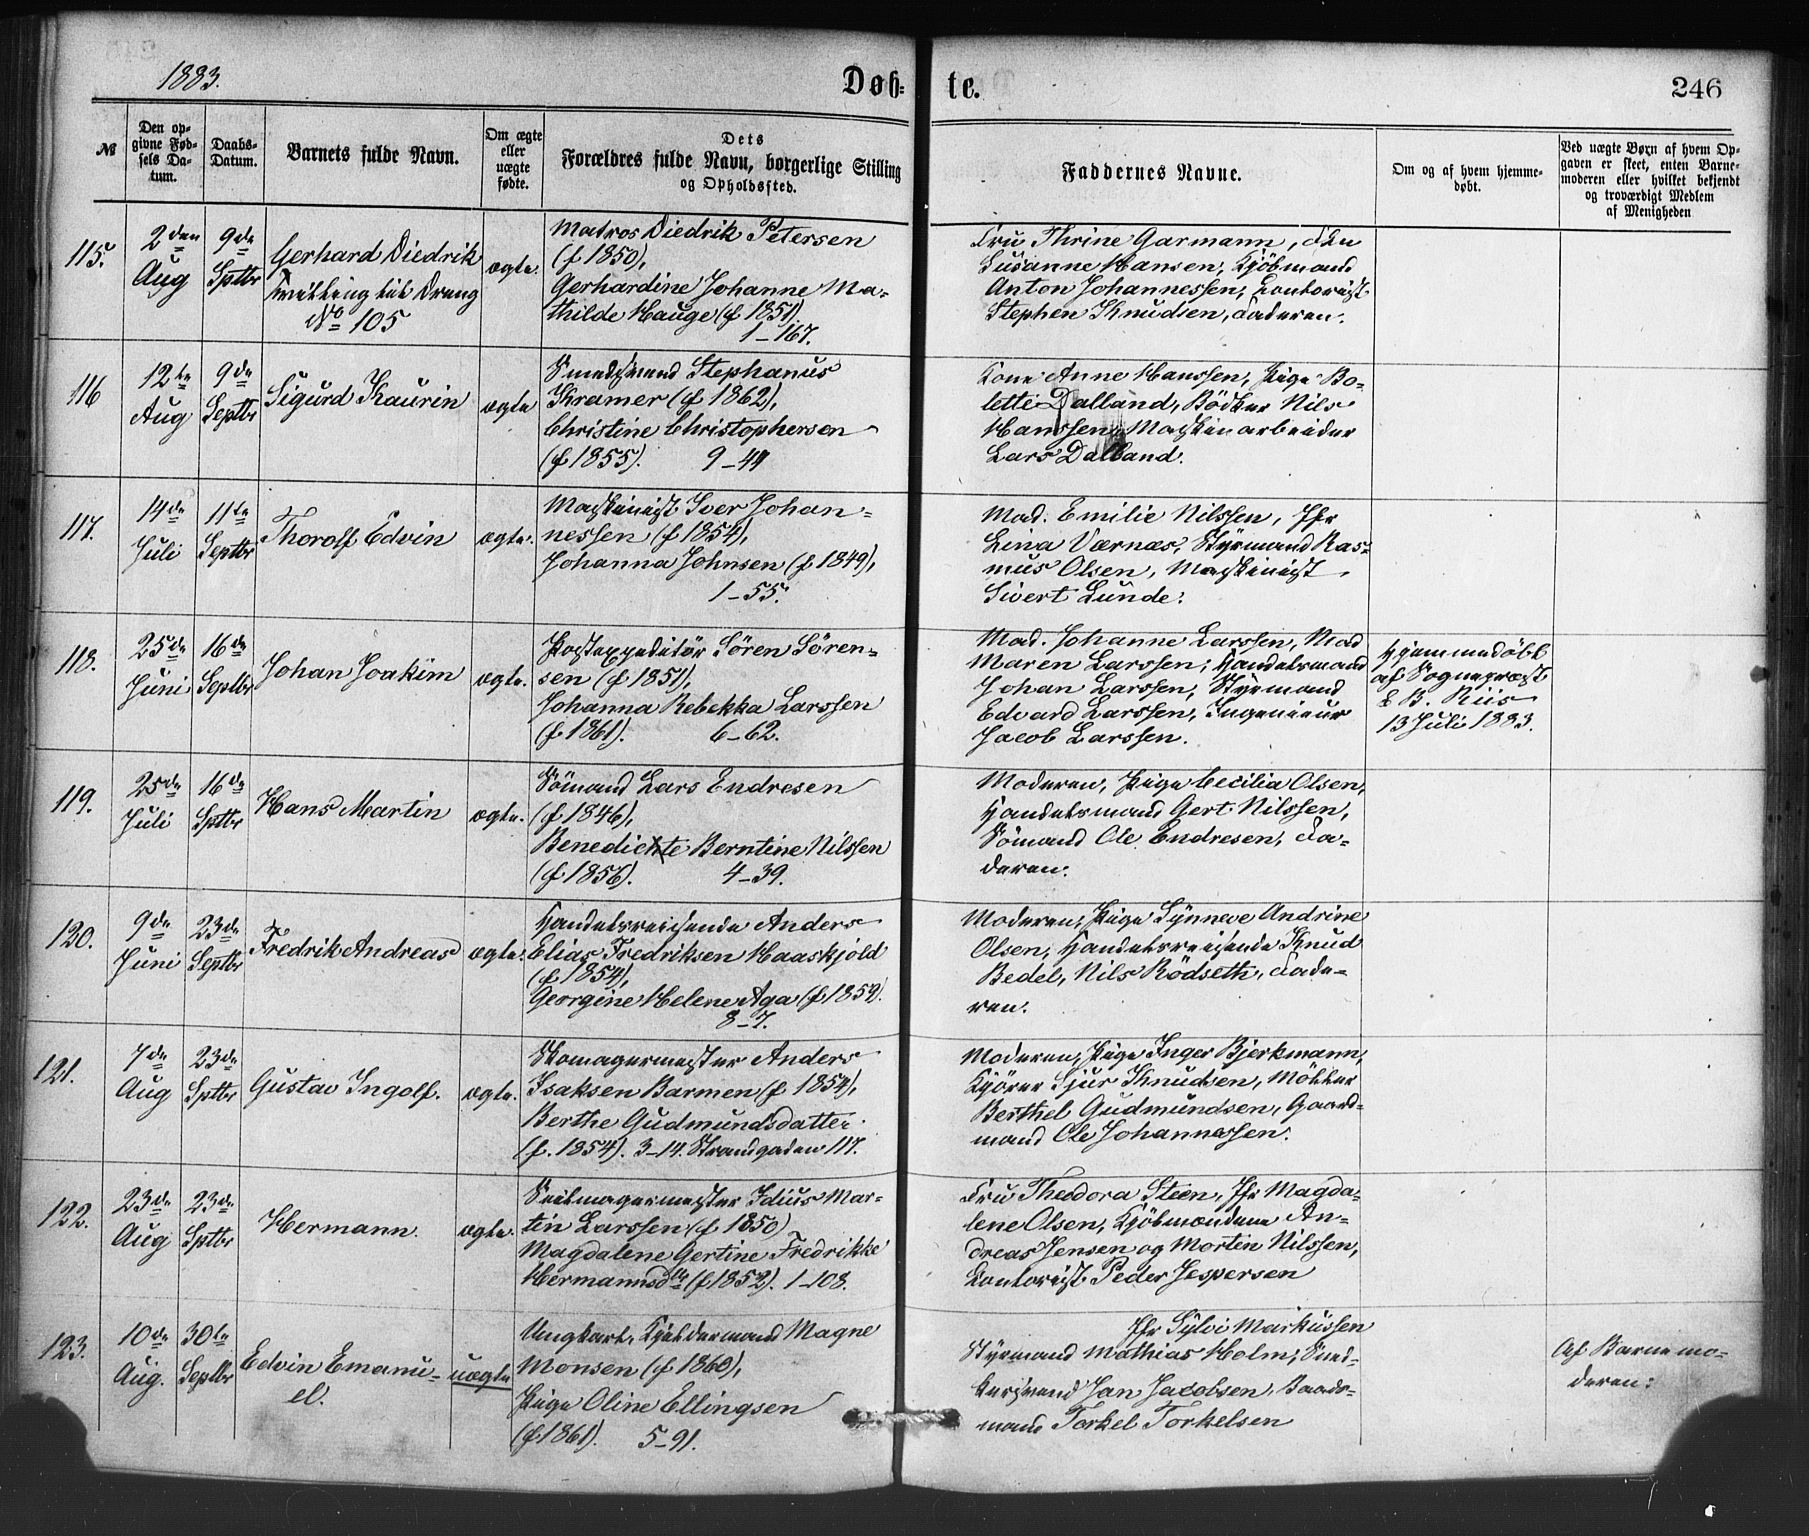 1883.
Døb- te.
246
№
Den opgivne Fødsels Datum.
Daabs-Datum.
Barnets fulde Navn.
Om ægte eller uægte fødte.
Dets Forældres fulde Navn, borgerlige Stilling og Opholdssted.
Faddernes Navne.
Om og af hvem hjemmedøbt.
Ved uægte Børn af hvem Opgaven er skeet, enten Barnemoderen eller hvilket bekjendt og troværdigt Medlem af Menigheden
115.
2den Aug
9de Sptbr
Gerhard Diedrik
Tvilling til Dreng
No 105
ægte.
Matros Diedrik Petersen
(f 1850),
Gerhardine Johanne Ma-
thilde Hauge (f 1851).
1-167.
Fru Thrine Garmann, Fru
Susanne Hansen, Kjöbmand
Anton Johannessen, Contorist
Stephen Knudsen, Faderen.
116
12te Aug
9de Septbr
Sigurd Kaurin
ægte
Smedsvend Stephanus
Kramer (f 1862),
Christine Christophersen
(f 1855). 9-44
Kone Anne Hanssen, Pige Bo-
lette Dalland, Bödker Nils
Hanssen, Maskinarbeider
Lars Dalland.
117.
14de Juli
11te Septbr
Thorolf Edvin
ægte.
Maskinist Iver Johan-
nessen (f 1854),
Johanna Johnsen (f 1849),
1-55.
Mad. Emilie Nilssen, Jfr
Lina Værnæs, Styrmand Ras-
mus Olsen, Maskinist
Sivert Lunde.
118.
25de Juni
16de Septbr
Johan Joakim
ægte.
Postexpeditör Sören Sören-
sen (f 1851),
Johanna Rebekka Larssen
(f 1861). 6-62.
Mad. Johanne Larssen, Mad
Maren Larssen, Handelsmand
Johan Larssen, Styrmand
Edvard Larssen, Ingenieur
Jacob Larssen.
Hjemmedöbt
af Sognepræst
E B. Riis
13 Juli 1883.
119.
25de Juli
16de Sptbr
Hans Martin
ægte.
Sömand Lars Endresen
(f 1846),
Benedicte Berntine Nilssen
(f 1856). 4-39.
Moderen, Pige Cecilia Olsen,
Handelsmand Gert Nilssen,
Sömand Ole Endresen, Fa-
deren.
120.
9de Juni
23de Septbr
Fredrik Andreas
ægte.
Handelsreisende Anders
Elias Fredriksen Haaskjold
(f 1854),
Georgine Helene Aga (f 1859.
8-7.
Moderen, Pige Synneve Andrine
Olsen, Handelsreisende Knud
Bedel, Nils Rödseth, Fade-
ren.
121.
7de Aug
23de Sptbr
Gustav Ingolf.
ægte.
Skomagermester Anders
Isaksen Barmen (f 1854),
Berthe Gudmundsdatter
(f. 1854). 3-14. Strandgaden 117.
Moderen, Pige Inger Bjerkmann,
Kjörer Sjur Knudsen, Möller
Berthel Gudmundsen, Gaard-
mand Ole Johannessen.
122.
23de Aug
23de Sptbr
Hermann.
ægte.
Seilmagermester Idius Mar-
tin Larssen (f 1850)
Magdalene Gertine Fredrikke
Hermannsdtr (f 1852). 1-108.
Fru Theodora Steen, Jfr Magda-
lene Olsen, Kjöbmændene An-
dreas Jensen og Morten Nilssen,
Contorist Peder Jespersen
123.
10de Aug.
30te Septbr
Edvin Emanu-
el.
uægte
Ungkarl, Kjeldermand Magne
Monsen (f 1860),
Pige Oline Ellingsen
(f 1861). 5-91.
Jfr Sylvi Markussen
Styrmand Mathias Holm, Sned-
kersvend Jan Jacobsen, Baads-
mand Torkel Torkelsen
Af Barnemo-
deren.